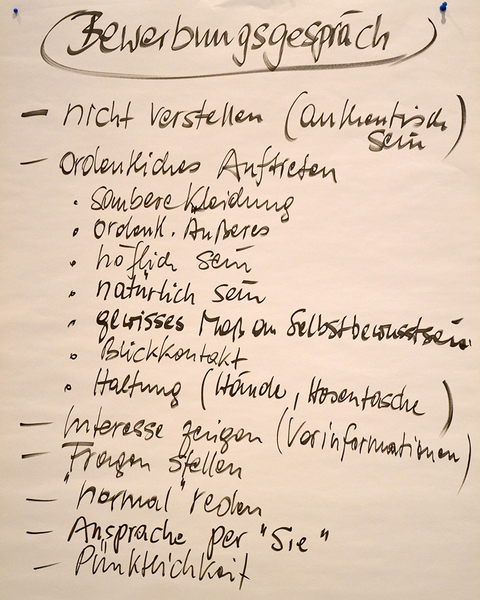 Bewerbungsgespräch
- nicht verstellen (authentisch
sein)
- ordentliches Auftreten
• saubere Kleidung
• ordentl. Äußeres
• höflich sein
• natürlich sein
• gewisses Maß an Selbstbewusstsein
• Blickkontakt
• Haltung (Hände, Hosentasche)
- Interesse zeigen (Vorinformationen)
- Fragen stellen
- "normal" reden
- Ansprache per "Sie"
- Pünktlichkeit